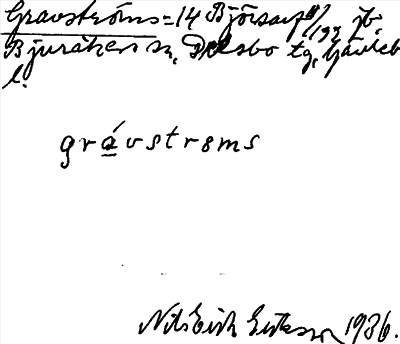 Gravströms = 14 Björsarf jb.
Bjuråkers sn, Delsbo tg, Gävleb
l.
grávstrøms
Nils Erik Eriksson 1936.